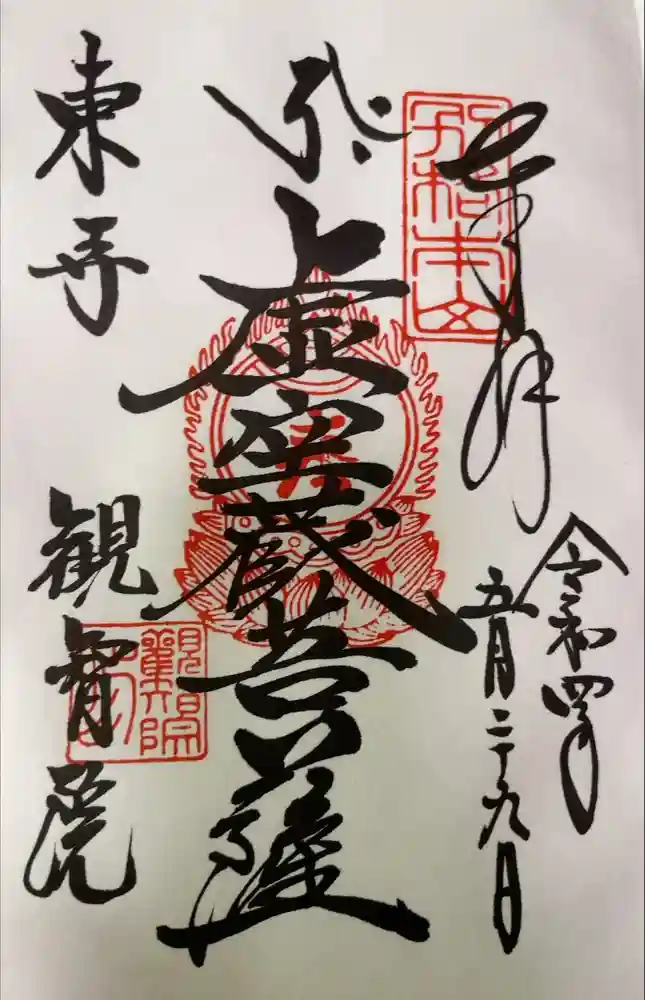 奉拝
令和四年
五月二十九日
虚空蔵菩薩
東寺
観智院
別格本山